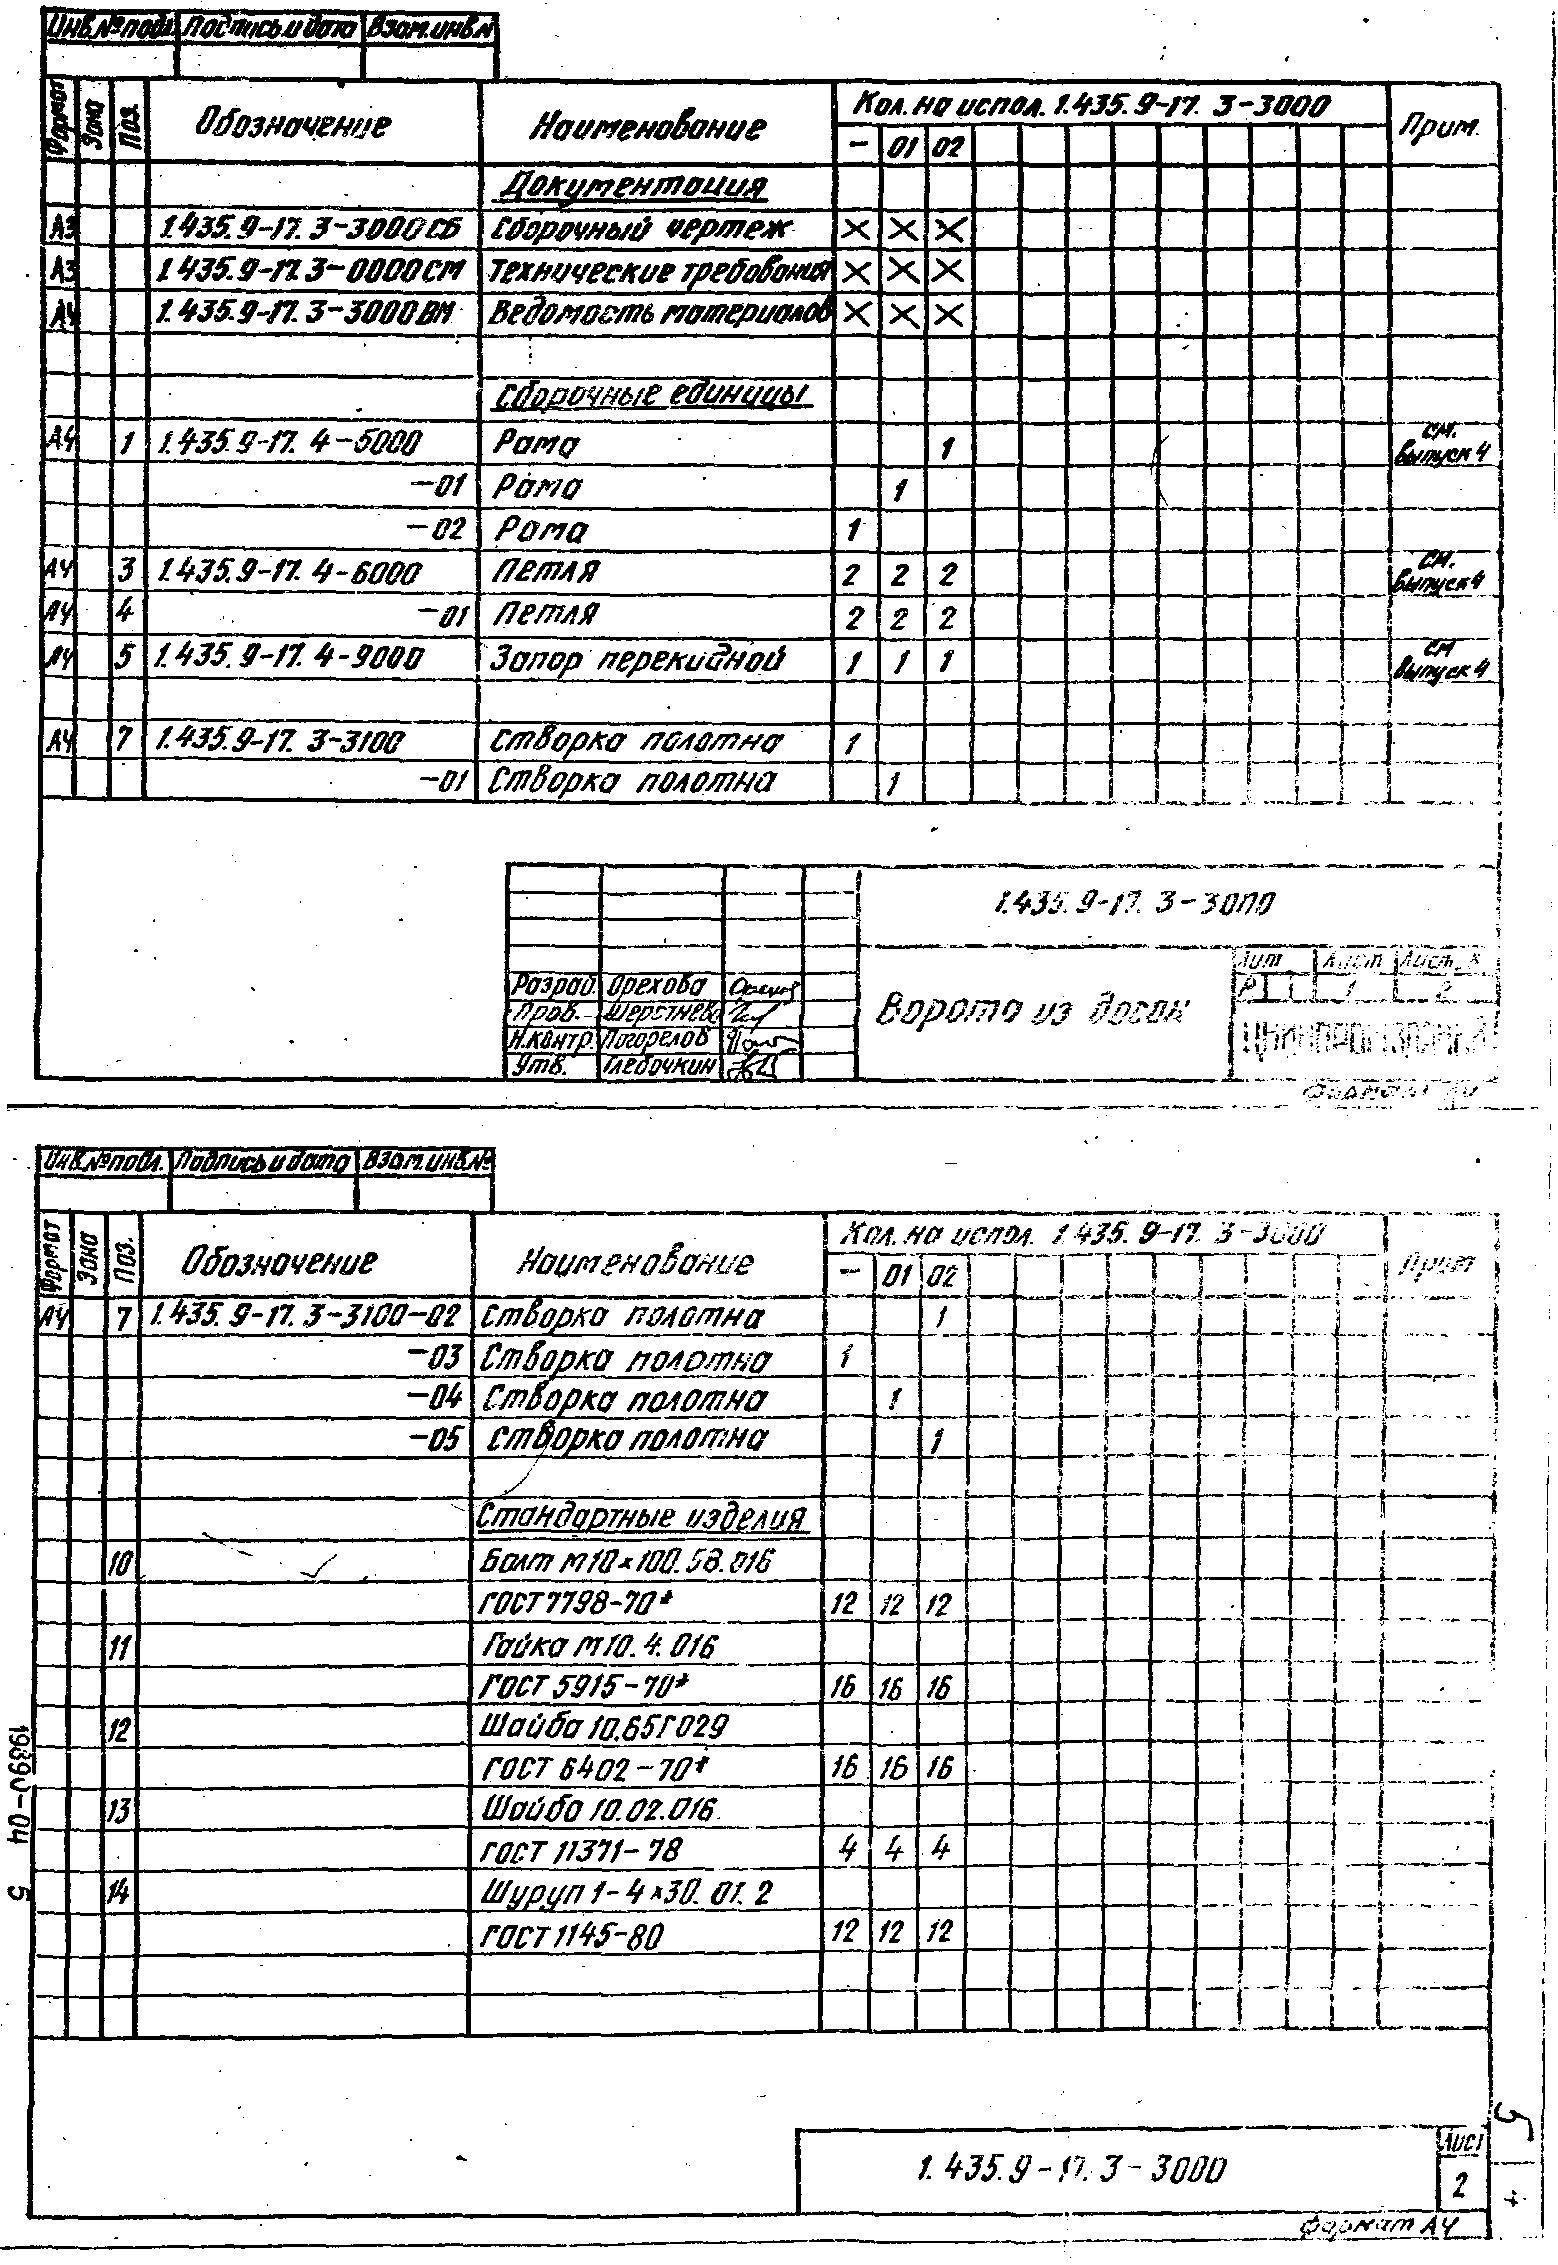 Инв.№ подл. Подпись и дата Взам.инв.№
Формат Зона Поз. Обозначение Наименование Кол. на испол. 1.435.9-17. 3-3000 Прим.
- 01 02
Документация
А3 1.435.9-17. 3-3000СБ Сборочный чертеж × × ×
А3 1.435.9-17. 3-0000СМ Технические требования × × ×
А4 1.435.9-17. 3-3000ВМ Ведомость материалов × × ×
Сборочные единицы
А4 1 1.435.9-17. 4-5000 Рама 1 см. выпуск 4
-01 Рама 1
-02 Рама 1
А4 3 1.435.9-17. 4-6000 Петля 2 2 2 см. выпуск 4
А4 4 -01 Петля 2 2 2
А4 5 1.435.9-17. 4-9000 Запор перекидной 1 1 1 см выпуск 4
А4 7 1.435.9-17. 3-3100 Створка полотна 1
-01 Створка полотна 1
1.435.9-17. 3-3000
Разраб. Орехова
Пров. Шерстнева
Н.контр. Погорелов
Утв. Глебочкин
Ворота из досок
Лит Лист
Р 1 2
Формат А4
Инв.№ подл. Подпись и дата Взам.инв.№
Формат Зона Поз. Обозначение Наименование Кол. на испол. 1.435.9-17. 3-3000 Прим
- 01 02
А4 7 1.435.9-17. 3-3100-02 Створка полотна 1
-03 Створка полотна 1
-04 Створка полотна 1
-05 Створка полотна 1
Стандартные изделия
10 Болт М10×100.58.016
ГОСТ 7798-70* 12 12 12
11 Гайка М10.4.016
ГОСТ 5915-70* 16 16 16
12 Шайба 10.65Г029
ГОСТ 6402-70* 16 16 16
13 Шайба 10.02.016
ГОСТ 11371-78 4 4 4
14 Шуруп 1-4×30.01.2
ГОСТ 1145-80 12 12 12
19390-04 5
1.435.9-17. 3-3000
Лист
2
5
Формат А4